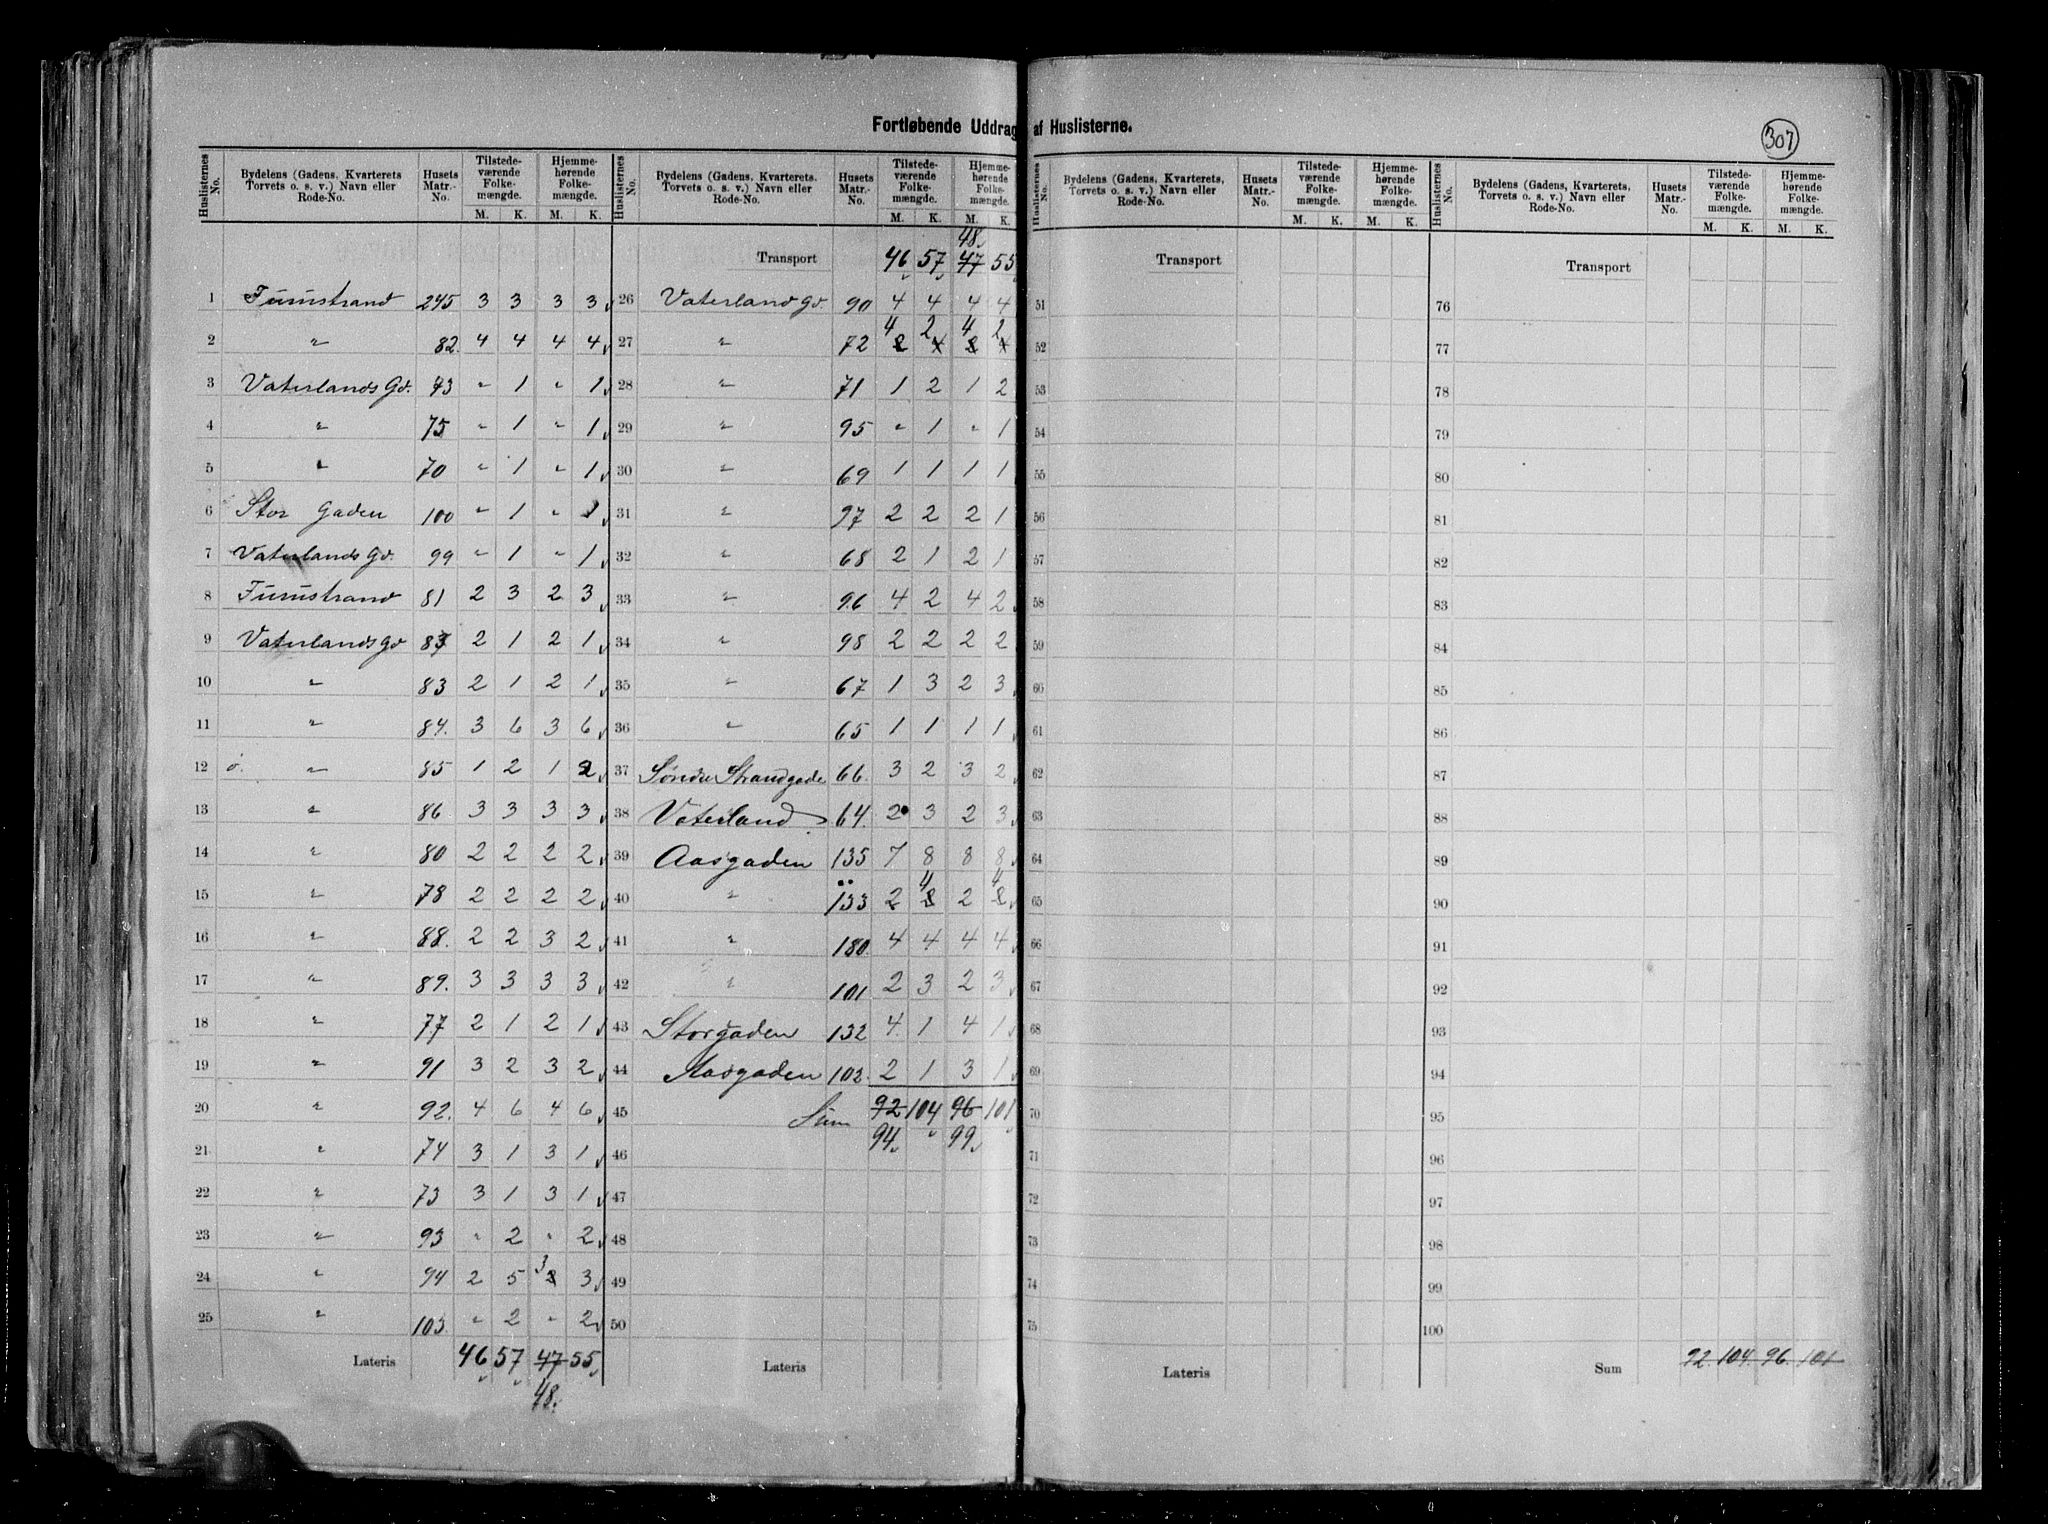 Fortløbende Uddrag af Huslisterne.
307
Huslisternes No. | Bydelens (Gadens, Kvarterets Torvets o. s. v.) Navn eller Rode-No. | Husets Matr.-No. | Tilstedeværende Folkemængde. M. K. | Hjemmehørende Folkemængde. M. K.
1 | 245 | 3 | 3 | 3 | 3
2 | " | 82. | 4 | 4 | 4 | 4
3 | Vaterlands Gd. | 73 | " | 1 | " | 1
4 | " | 75 | " | 1 | " | 1
5 | " | 70 | " | 1 | " | 1
6 | Stor Gaden | 100 | " | 1 | " | 1
7 | Vaterlands Gd. | 99 | " | 1 | " | 1
8 | 81 | 2 | 3 | 2 | 3
9 | Vaterlands Gd | 2 | 1 | 2 | 1
10 | " | 83 | 2 | 1 | 2 | 1
11 | " | 84. | 3 | 6 | 3 | 6
12 | " | 85 | 1 | 2 | 1 | 2
13 | " | 86 | 3 | 3 | 3 | 3
14 | " | 80 | 2 | 2 | 2 | 2
15 | " | 78 | 2 | 2 | 2 | 2
16 | " | 88. | 2 | 2 | 3 | 2
17 | " | 89. | 3 | 3 | 3 | 3
18 | " | 77 | 2 | 1 | 2 | 1
19 | " | 91 | 3 | 2 | 3 | 2
20 | " | 92. | 4 | 6 | 4 | 6
21 | " | 74 | 3 | 1 | 3 | 1
22 | " | 73 | 3 | 1 | 3 | 1
23 | " | 93 | " | 2 | " | 2
24 | " | 94 | 2 | 5 | 3 2 | 3
25 | " | 103 | " | 2 | " | 2
Lateris | 46 | 57 | 47 | 55
48.
Huslisternes No. | Bydelens (Gadens, Kvarterets. Torvets o. s. v.) Navn eller Rode-No. | Husets Matr.-No. | Tilstedeværende Folkemængde. M. K. | Hjemmehørende Folkemængde. M. K.
48.
Transport | 46 | 57 | 47 | 55
26 | Vaterland Gd. | 90 | 4 | 4 | 4 | 4
27 | " | 72 | 4 2 | 2 4 | 4 2 | 2 4
28 | " | 71 | 1 | 2 | 1 | 2
29 | " | 95 | " | 1 | " | 1
30 | " | 69 | 1 | 1 | 1 | 1
31 | " | 97 | 2 | 2 | 2 | 1
32 | " | 68 | 2 | 1 | 2 | 1
33 | " | 96 | 4 | 2 | 4 | 2
34 | " | 98 | 2 | 2 | 2 | 2
35 | " | 67 | 1 | 3 | 2 | 3
36 | " | 65 | 1 | 1 | 1 | 1
37 | Søndre Strandgade | 66. | 3 | 2 | 3 | 2
38 | Vaterland | 64. | 2 | 3 | 2 | 3
39 | Aasgaden | 135 | 7 | 8 | 8 | 8
40 | " | 133 | 2 | 4 2 | 2 | 4 2
41 | " | 180. | 4 | 4 | 4 | 4
42 | " | 101 | 2 | 3 | 2 | 3
43 | Storgaden | 132 | 4. | 1 | 4 | 1
44 | Aasgaden | 102. | 2 | 1 | 3 | 1
45 | Sum | 92 | 104 | 96 | 101
46 | 94 | 99
47
48
49
50
Lateris
Huslisternes No. | Bydelens (Gadens, Kvarterets, Torvets o. s. v.) Navn eller Rode-No. | Husets Matr.-No. | Tilstedeværende Folkemængde. M. K. | Hjemmehørende Folkemængde. M. K.
Transport
51
52
53
54
55
56
57
58
59
66
61
62
63
64
65
66
67
68
69
70
71
72
73
74
75
Lateris
Huslisternes No. | Bydelens (Gadens, Kvarterets, Torvets o. s. v.) Navn eller Rode-No. | Husets Matr.-No. | Tilstedeværende Folkemængde. M. K. | Hjemmehørende Folkemængde. M. K.
Transport
76
77
78
79
80
81
82
83
84
85
86
87
88
89
90
91
92
93
94
95
96
97
98
99
100
Sum | 92. | 104. | 96. | 101